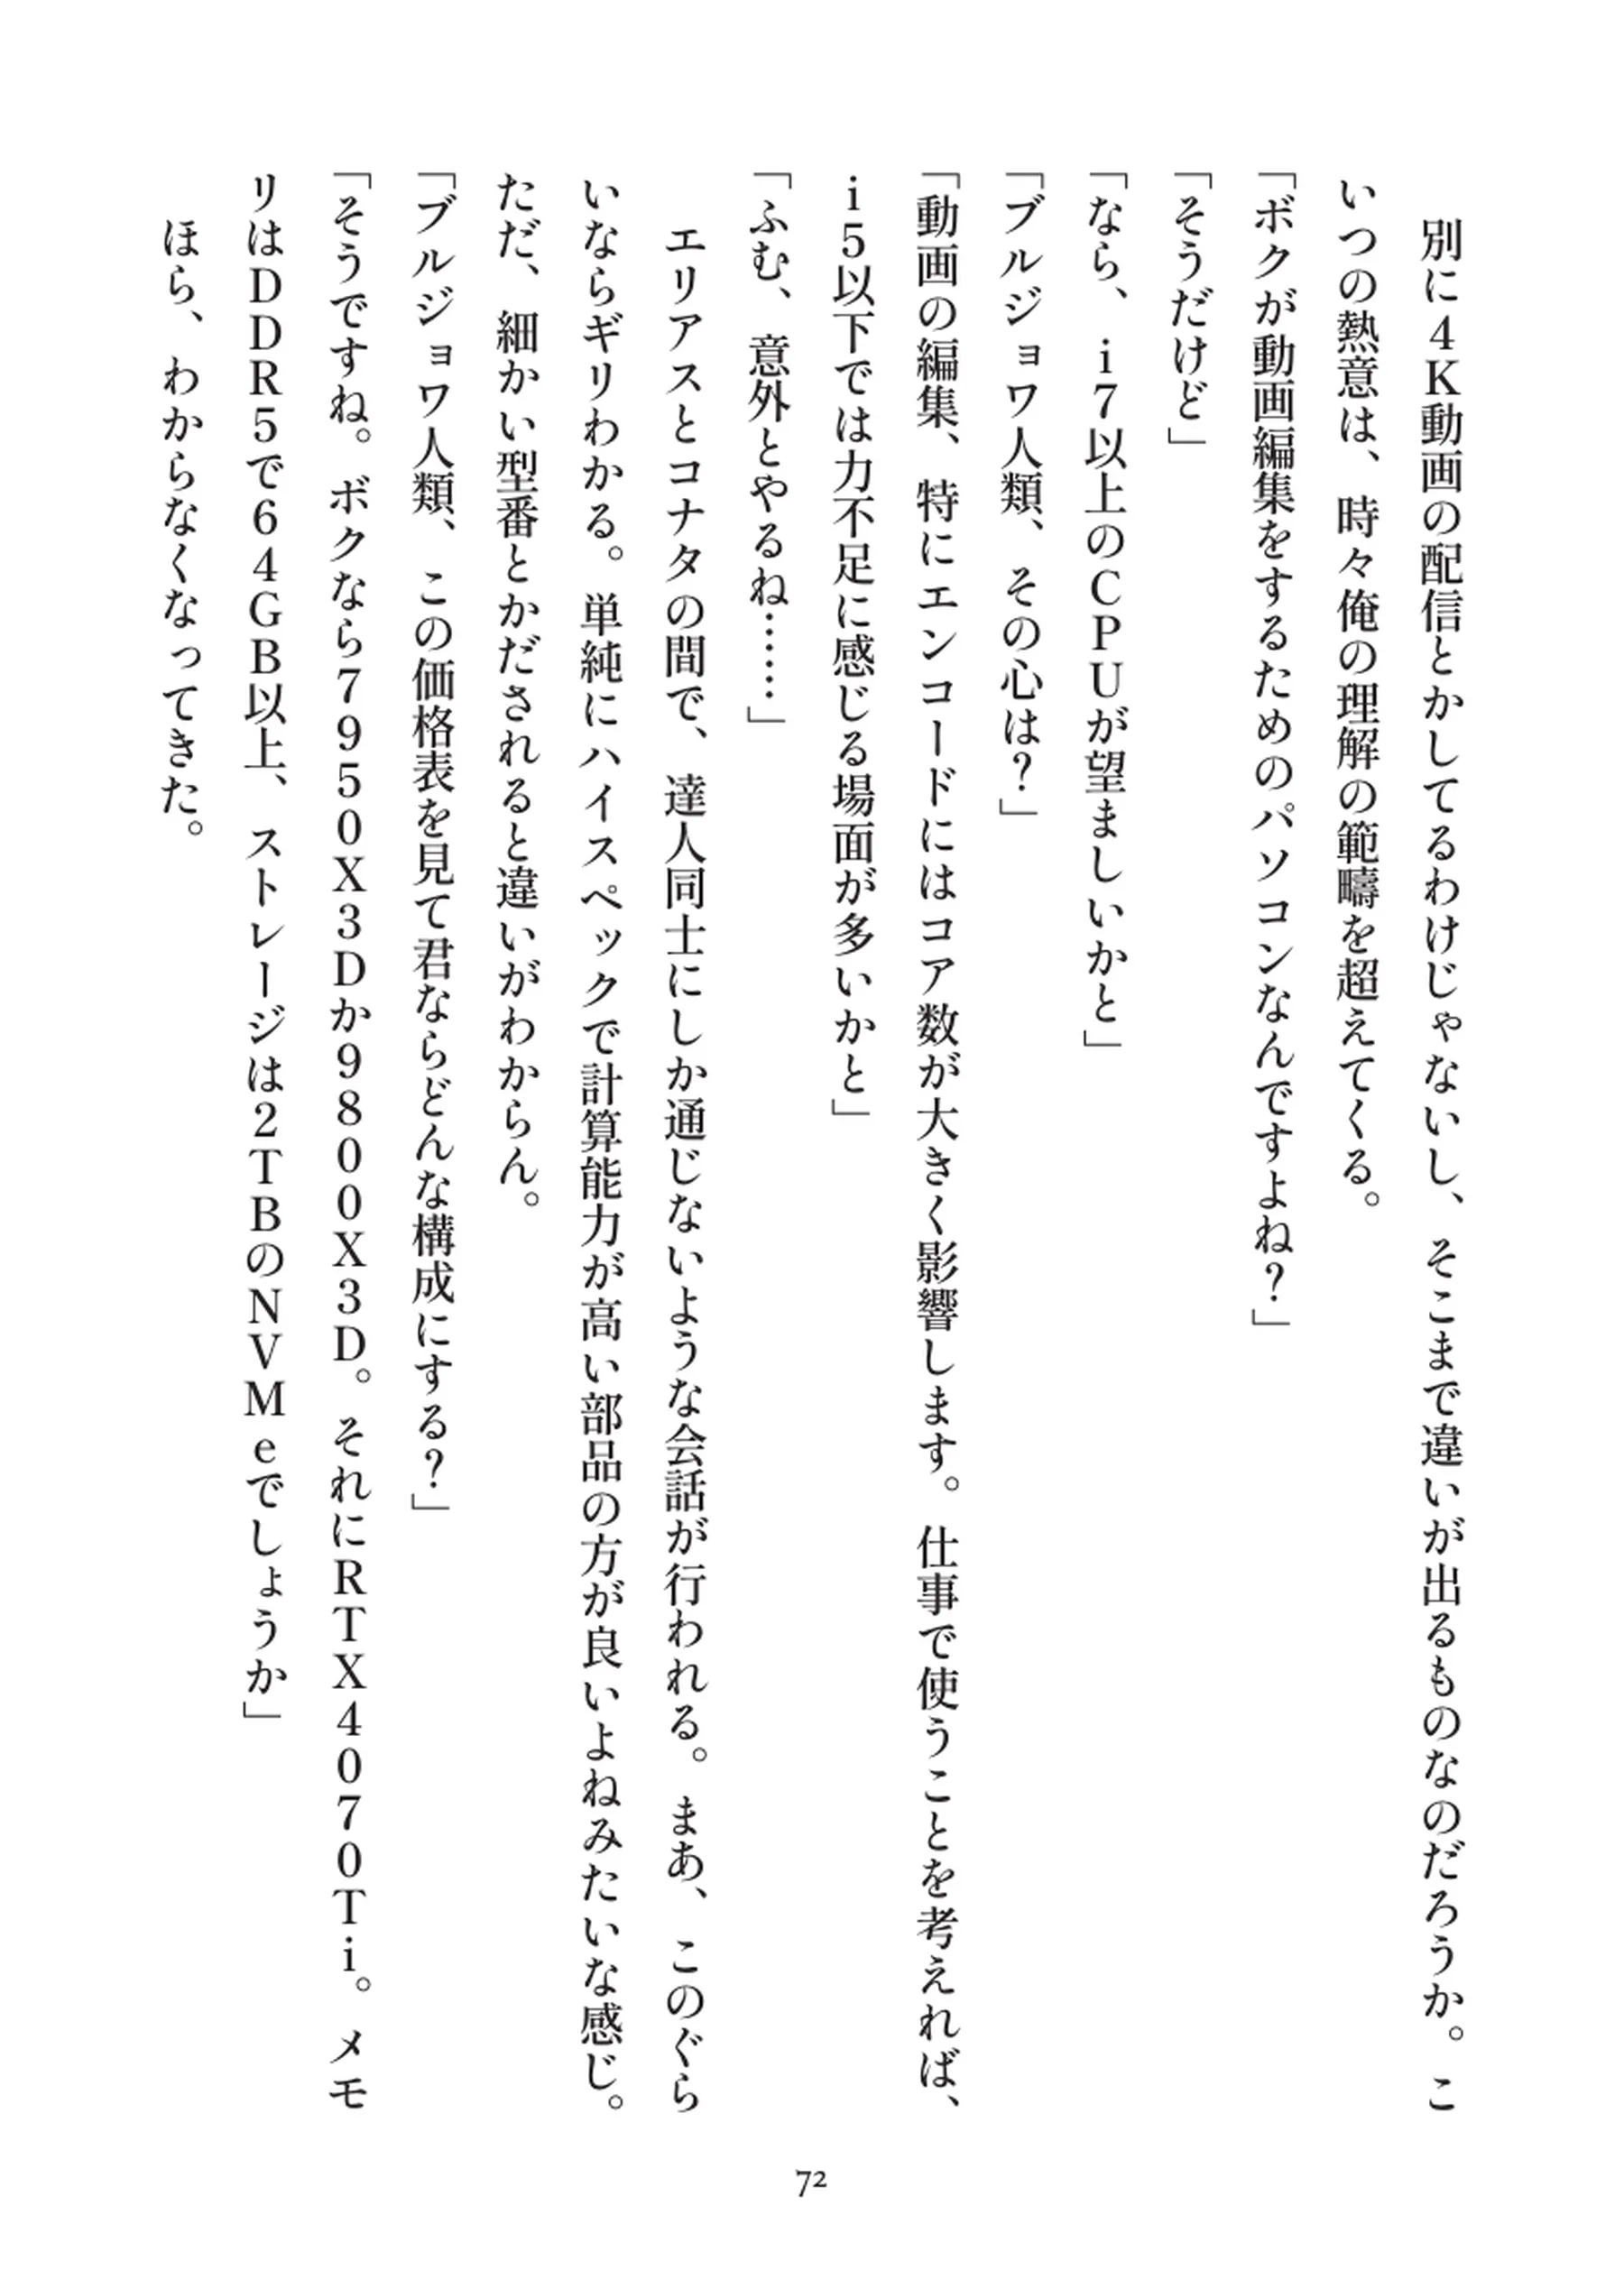 別に４Ｋ動画の配信とかしてるわけじゃないし、そこまで違いが出るものなのだろうか。こ
いつの熱意は、時々俺の理解の範疇を超えてくる。
「ボクが動画編集をするためのパソコンなんですよね？」
「そうだけど」
「なら、ｉ７以上のＣＰＵが望ましいかと」
「ブルジョワ人類、その心は？」
「動画の編集、特にエンコードにはコア数が大きく影響します。仕事で使うことを考えれば、
ｉ５以下では力不足に感じる場面が多いかと」
「ふむ、意外とやるね……」
　エリアスとコナタの間で、達人同士にしか通じないような会話が行われる。まあ、このぐら
いならギリわかる。単純にハイスペックで計算能力が高い部品の方が良いよねみたいな感じ。
ただ、細かい型番とかだされると違いがわからん。
「ブルジョワ人類、この価格表を見て君ならどんな構成にする？」
「そうですね。ボクなら７９５０Ｘ３Ｄか９８００Ｘ３Ｄ。それにＲＴＸ４０７０Ｔｉ。メモ
リはＤＤＲ５で６４ＧＢ以上、ストレージは２ＴＢのＮＶＭｅでしょうか」
　ほら、わからなくなってきた。
72